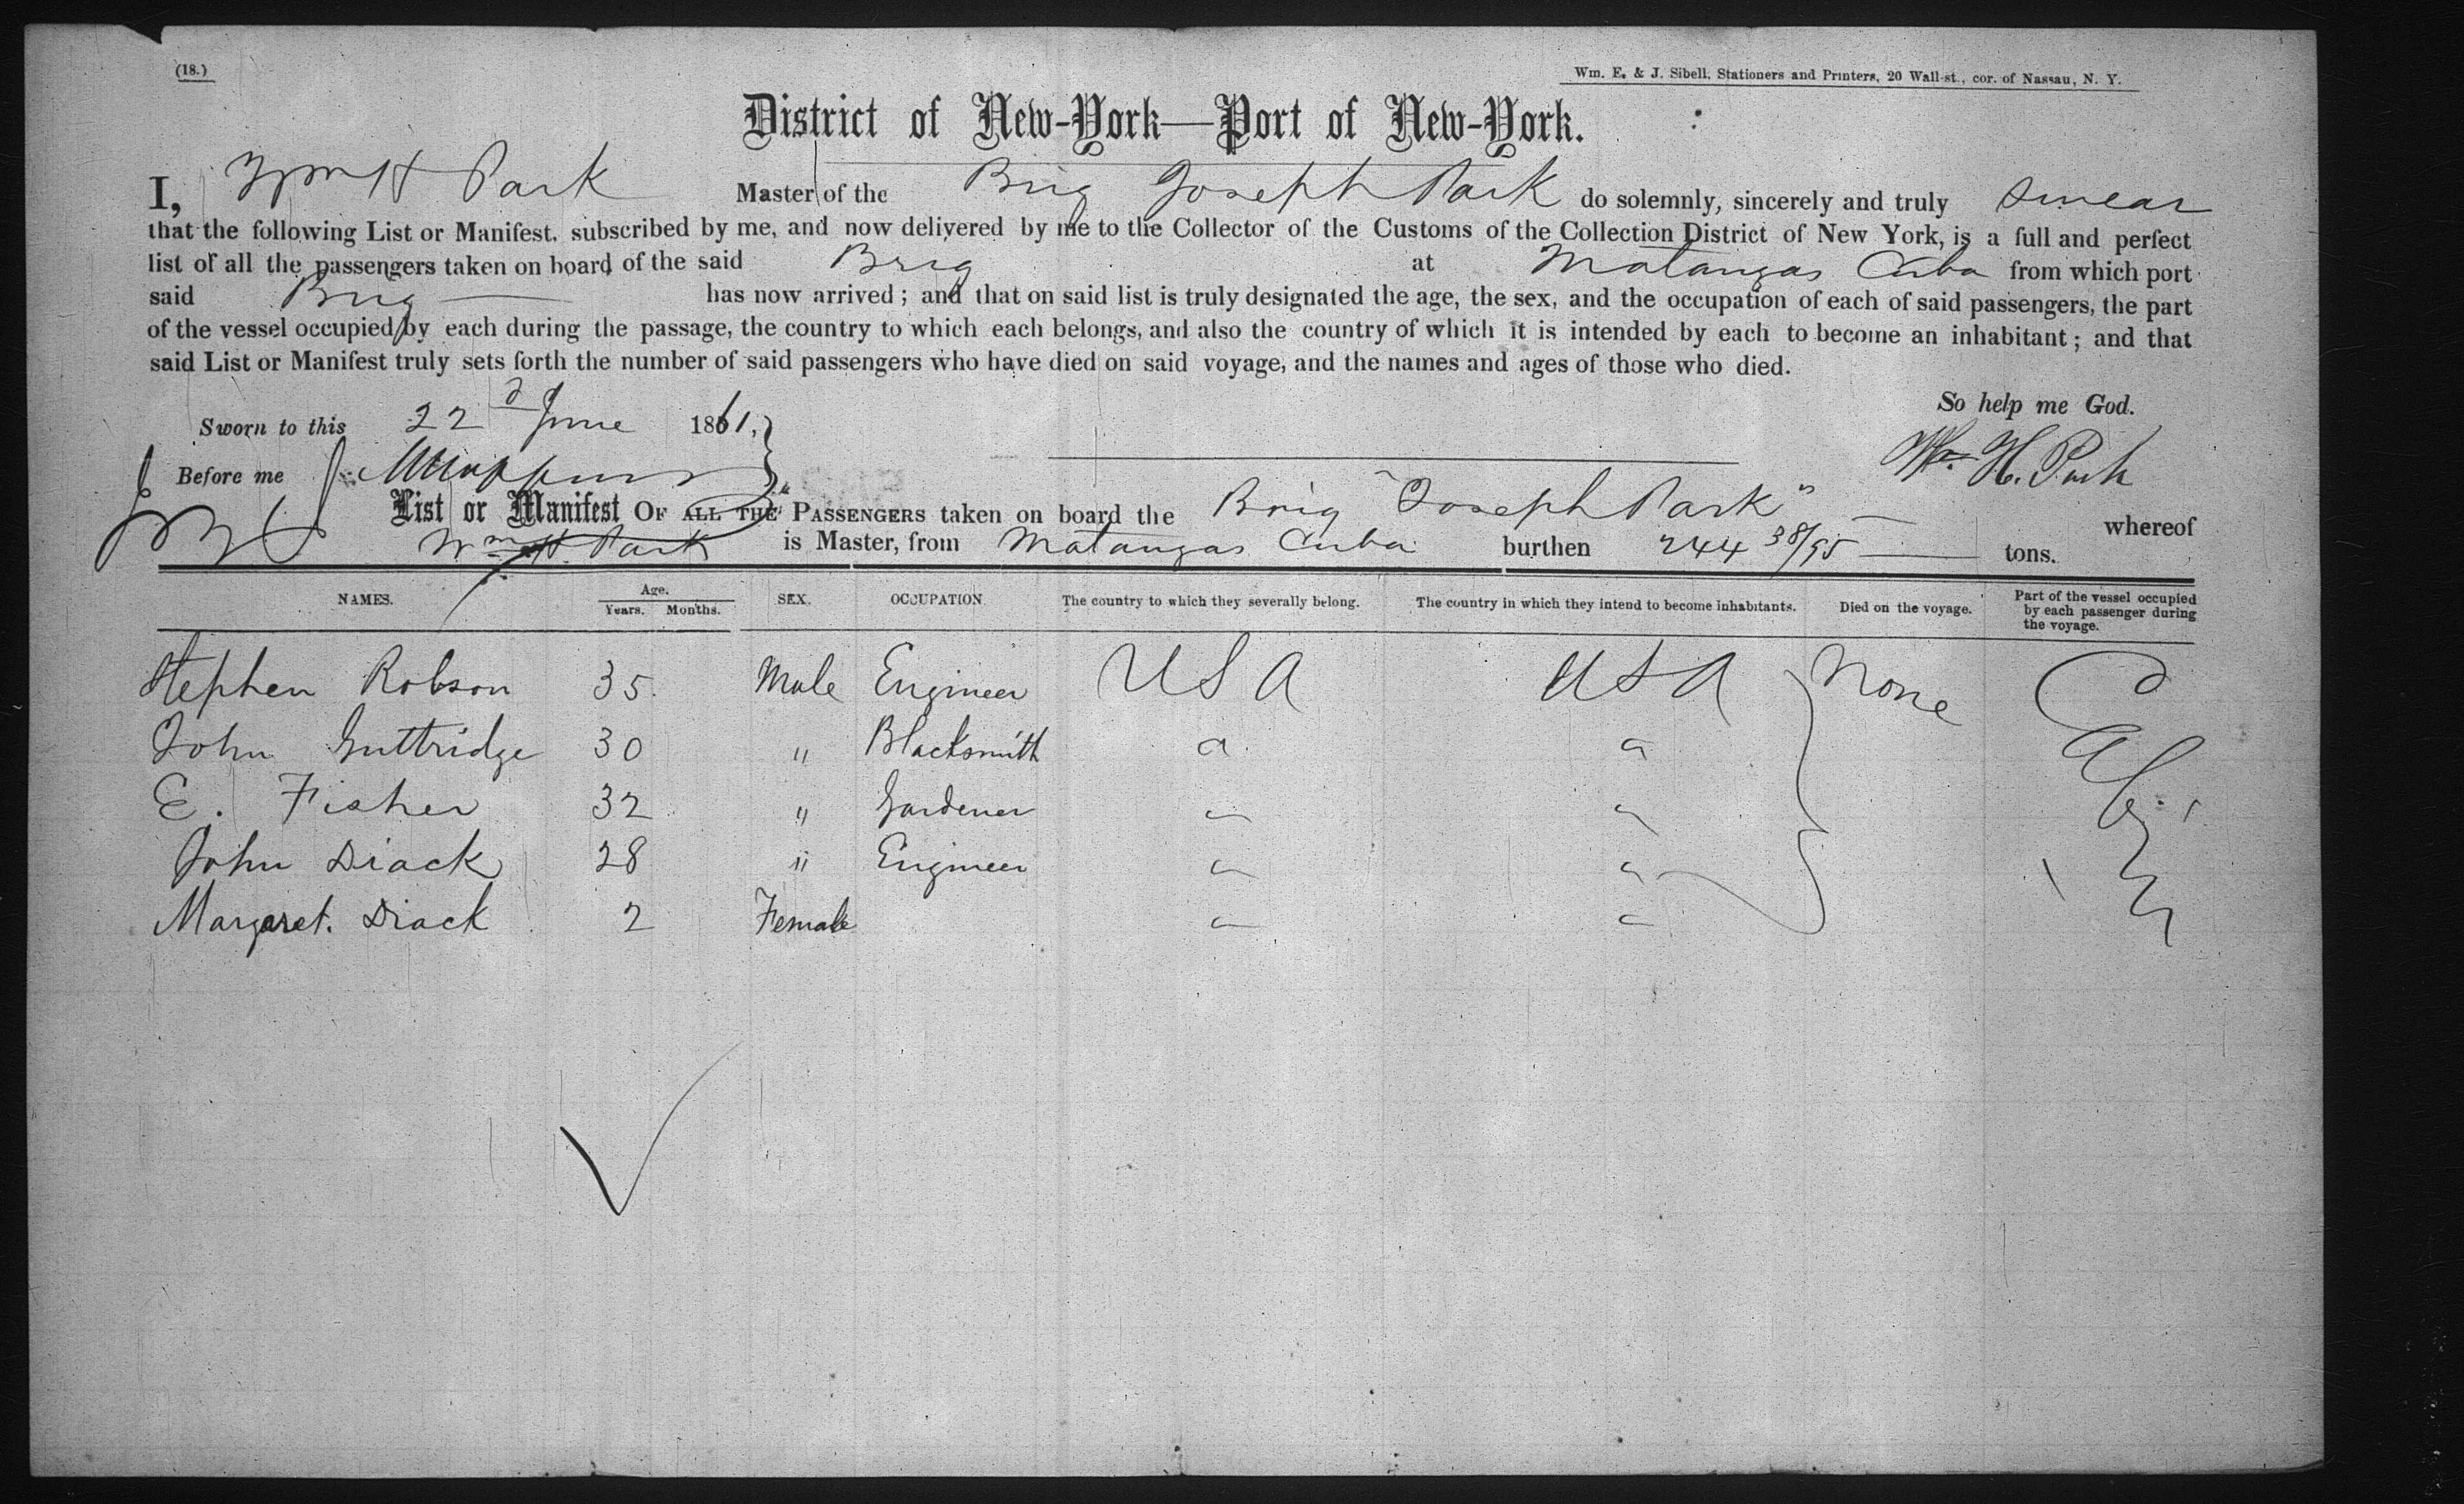 (18.)
Wm. E. & J. Sibell, Stationers and Printers, 20 Wall-st., cor. of Nassau, N. Y.
District of New-York—Port of New-York.
I, Wm H Park Master of the Brig Joseph Park do solemnly, sincerely and truly swear
that the following List or Manifest, subscribed by me, and now delivered by me to the Collector of the Customs of the Collection District of New York, is a full and perfect
list of all the passengers taken on board of the said Brig at Matanzas Cuba from which port
said Brig has now arrived; and that on said list is truly designated the age, the sex, and the occupation of each of said passengers, the part
of the vessel occupied by each during the passage, the country to which each belongs, and also the country of which it is intended by each to become an inhabitant; and that
said List or Manifest truly sets forth the number of said passengers who have died on said voyage, and the names and ages of those who died.
So help me God.
Sworn to this 22d June 1861,
Wm. H. Park
Before me
List or Manifest OF ALL THE PASSENGERS taken on board the Brig "Joseph Park" whereof
Wm H. Park is Master, from Matanzas Cuba burthen 244 38/95 tons.
NAMES. Age. Years. Months. SEX. OCCUPATION The country to which they severally belong. The country in which they intend to become inhabitants. Died on the voyage. Part of the vessel occupied by each passenger during the voyage.
Stephen Robson 35 Male Engineer U S A U S A None Cabin
John Guttridge 30 " Blacksmith " "
E. Fisher 32 " Gardener " "
John Diack 28 " Engineer " "
Margaret. Diack 2 Female " "